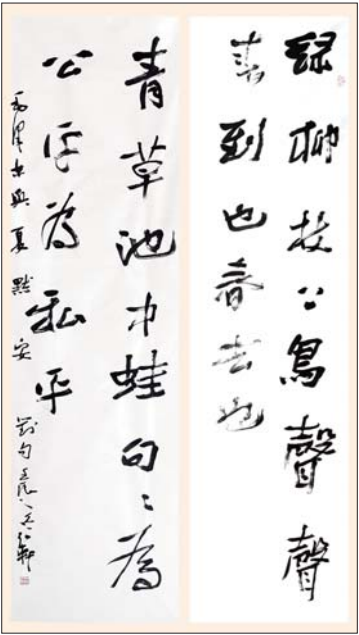 綠柳枝上鳥聲聲
春到也春去也
青草池中蛙句々為
公乎為私乎
毛澤東與夏默安對句